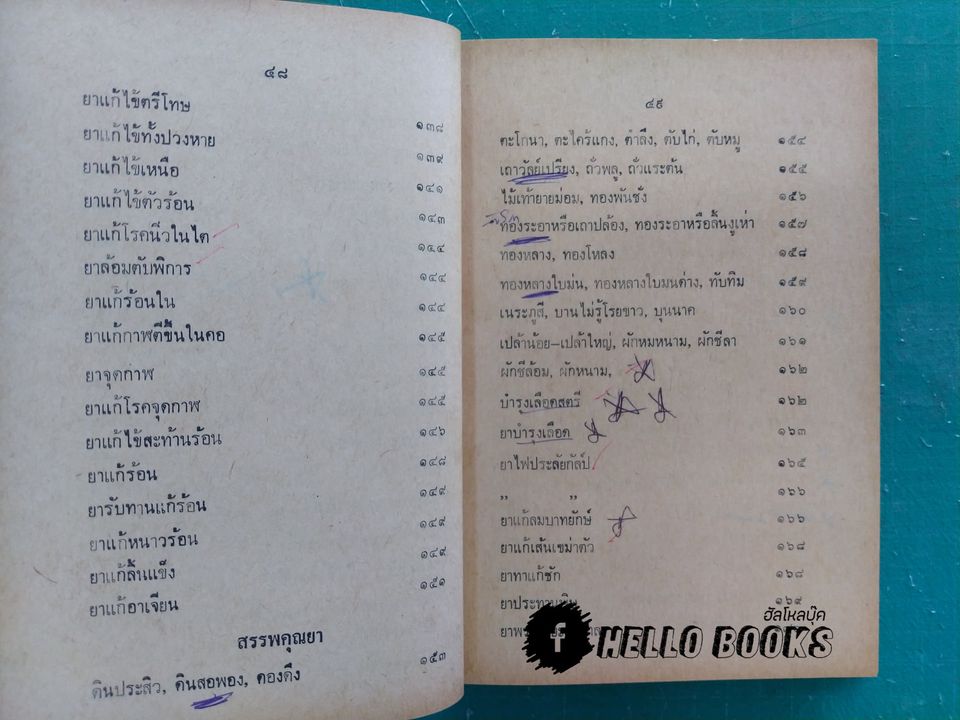 ๔๘
ยาแก้ไข้ตรีโทษ ๑๓๘
ยาแก้ไข้ทั้งปวงหาย ๑๓๙
ยาแก้ไข้เหนือ ๑๔๑
ยาแก้ไข้ตัวร้อน ๑๔๓
ยาแก้โรคนิ่วในไต ๑๔๔
ยาล้อมตับพิการ ๑๔๔
ยาแก้ร้อนใน ๑๔๔
ยาแก้กาฬตีขึ้นในคอ ๑๔๕
ยาจุดกาฬ ๑๔๕
ยาแก้โรคจุดกาฬ ๑๔๕
ยาแก้ไข้สะท้านร้อน ๑๔๖
ยาแก้ร้อน ๑๔๘
ยารับทานแก้ร้อน ๑๔๙
ยาแก้หนาวร้อน ๑๔๙
ยาแก้ลิ้นแข็ง ๑๔๙
ยาแก้อาเจียน ๑๕๑
สรรพคุณยา
ดินประสิว, ดินสอพอง, ดองดึง ๑๕๓
๔๙
ตะโกนา, ตะไคร้แกง, ตำลึง, ตับไก่, ตับหมู ๑๕๔
เถาวัลย์เปรียง, ถั่วพลู, ถั่วแระต้น ๑๕๕
ไม้เท้ายายม่อม, ทองพันชั่ง ๑๕๖
ทองระอาหรือเถาปล้อง, ทองระอาหรือลิ้นงูเห่า ๑๕๗
ทองหลาง, ทองโหลง ๑๕๘
ทองหลางใบมน, ทองหลางใบมนด่าง, ทับทิม ๑๕๙
เนระภูสี, บานไม่รู้โรยขาว, บุนนาค ๑๖๐
เปล้าน้อย–เปล้าใหญ่, ผักหมหนาม, ผักชีลา ๑๖๑
ผักชีล้อม, ผักหนาม, ๑๖๒
บำรุงเลือดสตรี ๑๖๒
ยาบำรุงเลือด ๑๖๓
ยาไฟประลัยกัลป์ ๑๖๕
,, ,, ๑๖๖
ยาแก้ลมบาทยักษ์ ๑๖๖
ยาแก้เส้นเขม่าตัว ๑๖๘
ยาทาแก้ชัก ๑๖๘
ยาประทานพิษ ๑๖๙
f ฮัลโหลบุ๊ค
HELLO BOOKS